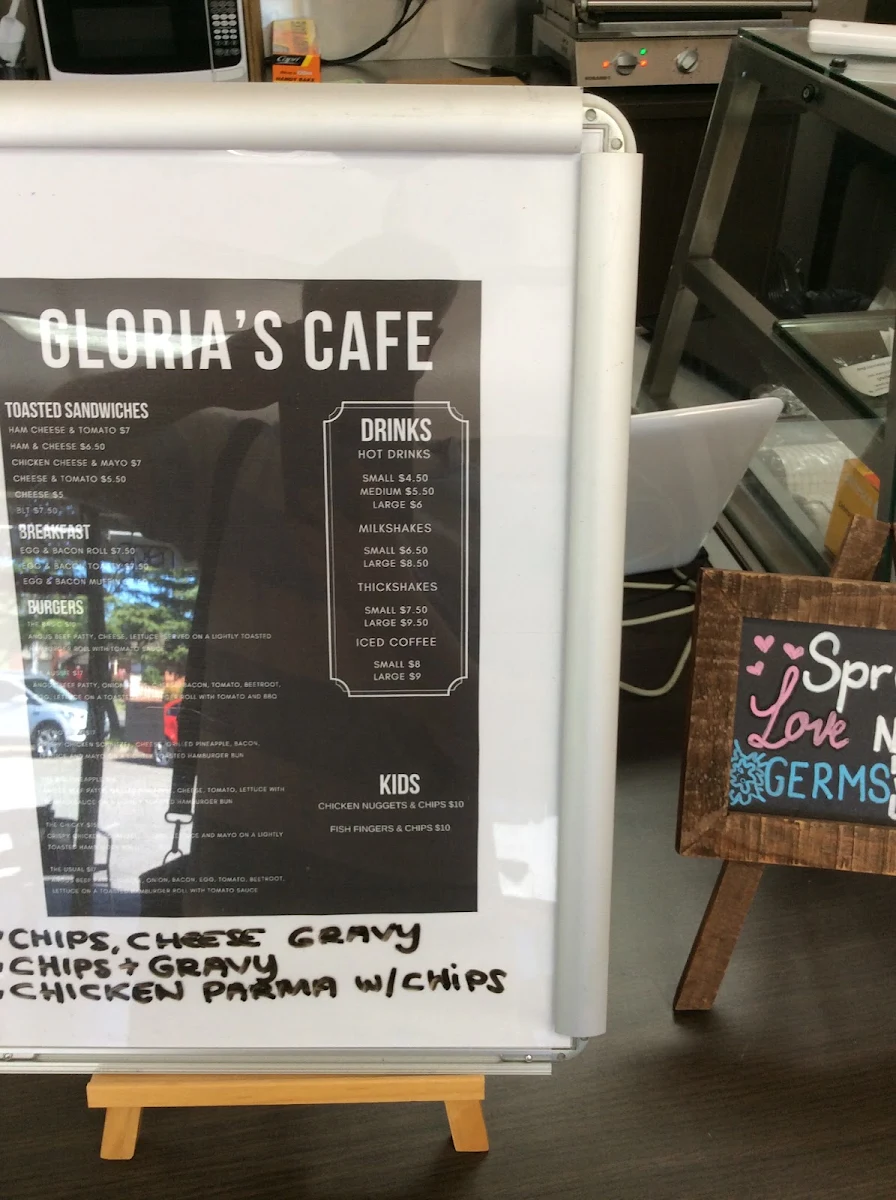 GLORIA'S CAFE
TOASTED SANDWICHES
HAM CHEESE & TOMATO $7
HAM & CHEESE $6.50
CHICKEN CHEESE & MAYO $7
CHEESE & TOMATO $5.50
CHEESE $5
BLT $7.50
BREAKFAST
EGG & BACON ROLL $7.50
EGG & BACON $7.50
EGG & BACON
BURGERS
ANGUS BEEF PATTY, CHEESE, LETTUCE SERVED ON A LIGHTLY TOASTED
HAMBURGER ROLL WITH TOMATO SAUCE
ANGUS BEEF PATTY, BACON, TOMATO, BEETROOT,
EGG, LETTUCE ON A ROLL WITH TOMATO AND BBQ
CHEESE, GRILLED PINEAPPLE, BACON,
HAMBURGER BUN
CHEESE, TOMATO, LETTUCE WITH
HAMBURGER BUN
AND MAYO ON A LIGHTLY
TOASTED
THE USUAL
ONION, BACON, EGG, TOMATO, BEETROOT,
LETTUCE ON A TOASTED HAMBURGER ROLL WITH TOMATO SAUCE
DRINKS
HOT DRINKS
SMALL $4.50
MEDIUM $5.50
LARGE $6
MILKSHAKES
SMALL $6.50
LARGE $8.50
THICKSHAKES
SMALL $7.50
LARGE $9.50
ICED COFFEE
SMALL $8
LARGE $9
KIDS
CHICKEN NUGGETS & CHIPS $10
FISH FINGERS & CHIPS $10
CHIPS, CHEESE GRAVY
CHIPS + GRAVY
CHICKEN PARMA W/CHIPS
Spr
Love N
GERMS